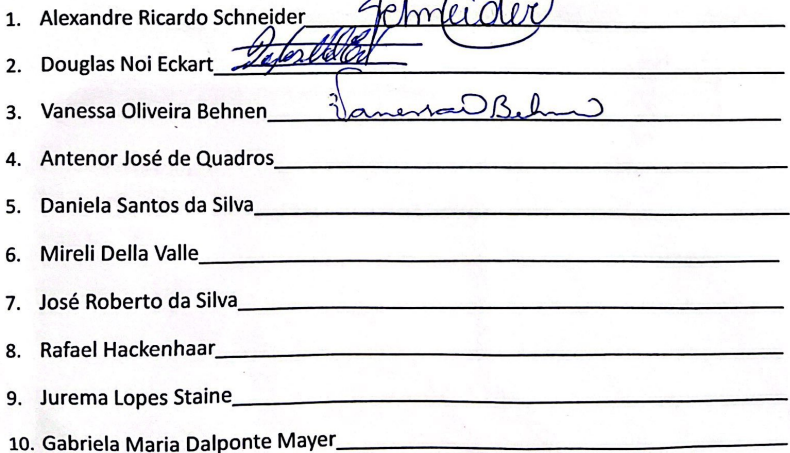 1. Alexandre Ricardo Schneider Schneider
2. Douglas Noi Eckart
3. Vanessa Oliveira Behnen Vanessa O Behnen
4. Antenor José de Quadros
5. Daniela Santos da Silva
6. Mireli Della Valle
7. José Roberto da Silva
8. Rafael Hackenhaar
9. Jurema Lopes Staine
10. Gabriela Maria Dalponte Mayer